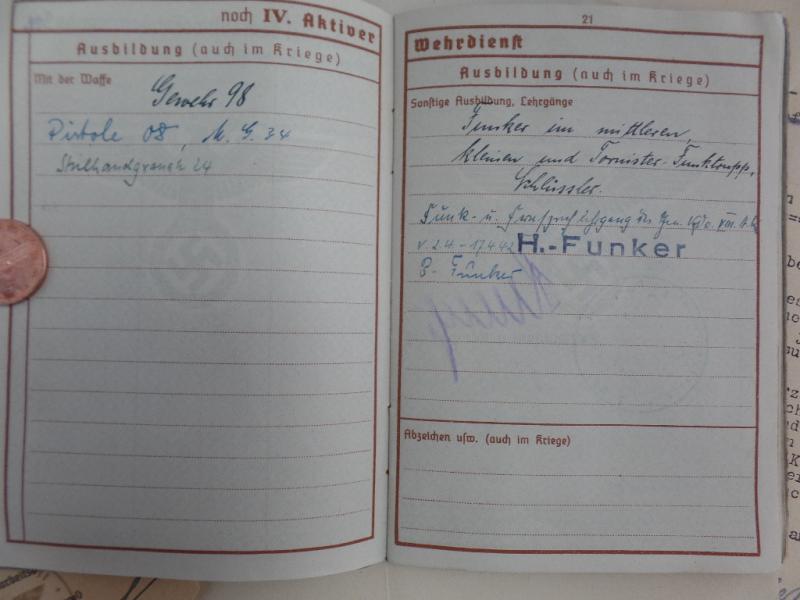 noch IV. Aktiver
Ausbildung (auch im Kriege)
Mit der Waffe
Gewehr 98
Pistole 08, M. G. 34
Stielhandgranate 24
21
Wehrdienst
Ausbildung (auch im Kriege)
Sonstige Ausbildung, Lehrgänge
Funker im mittleren,
kleinen und Tornister-Funktrupp,
Schlüssler.
Funk- u. Fernsprechlehrgang des
v. 2.4. - 17.4.42 H.-Funker
B- Funker
Abzeichen usw. (auch im Kriege)